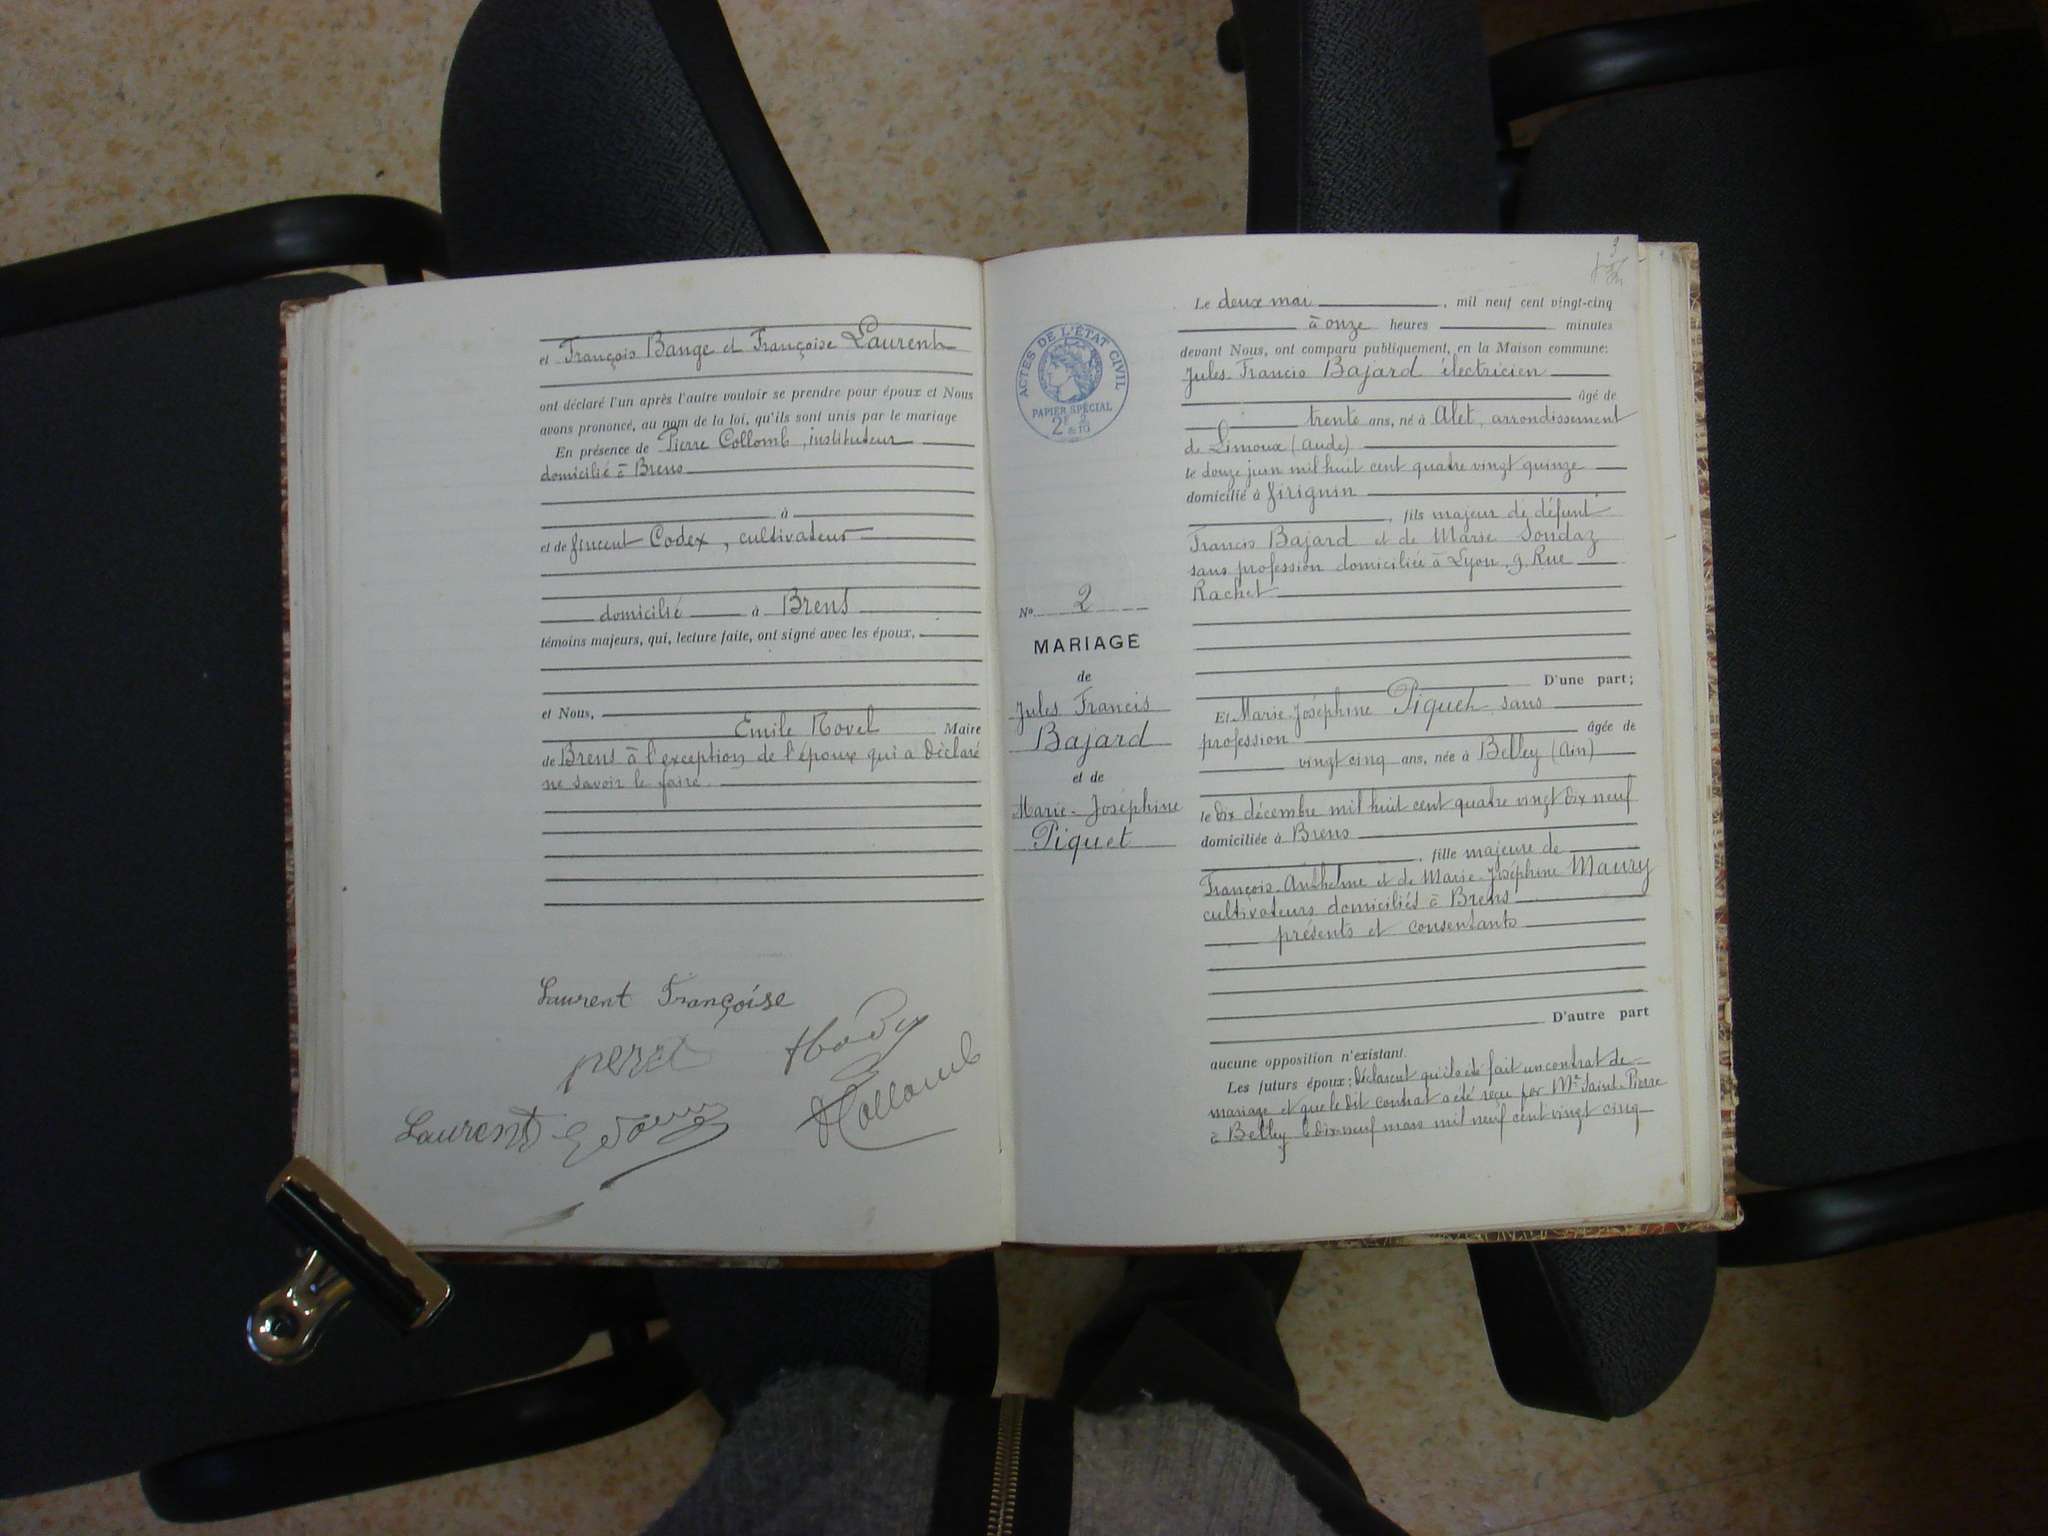 et François Bange et Françoise Laurent
ont déclaré l'un après l'autre vouloir se prendre pour époux et Nous
avons prononcé, au nom de la loi, qu'ils sont unis par le mariage
En présence de Pierre Collomb, instituteur
domicilié à Brens
à
et de Vincent Codex, cultivateur
domicilié à Brens
témoins majeurs, qui, lecture faite, ont signé avec les époux,
et Nous,
Emile Novel Maire
de Brens à l'exception de l'époux qui a déclaré
ne savoir le faire.
Laurent Françoise
Laurent
Collomb
ACTES DE L'ÉTAT CIVIL
PAPIER SPÉCIAL
No 2
MARIAGE
de
Jules Francis
Bajard
et de
Marie-Joséphine
Piquet
3
Le deux mai, mil neuf cent vingt-cinq
à onze heures minutes
devant Nous, ont comparu publiquement, en la Maison commune:
Jules Francis Bajard électricien
âgé de
trente ans, né à Alet, arrondissement
de Limoux (Aude)
le douze juin mil huit cent quatre vingt quinze
domicilié à Virignin
, fils majeur de défunt
Francis Bajard et de Marie Sondaz
sans profession domiciliée à Lyon, 9 Rue
Rachet
D'une part;
Et Marie-Joséphine Piquet sans
profession âgée de
vingt cinq ans, née à Belley (Ain)
le dix décembre mil huit cent quatre vingt dix neuf
domiciliée à Brens
, fille majeure de
François-Anthelme et de Marie-Joséphine Maury
cultivateurs domiciliés à Brens
présents et consentants
D'autre part
aucune opposition n'existant.
Les futurs époux: déclarent qu'il a été fait un contrat de
mariage et que le dit contrat a été reçu par Me Saint-Pierre
à Belley le dix-neuf mars mil neuf cent vingt cinq